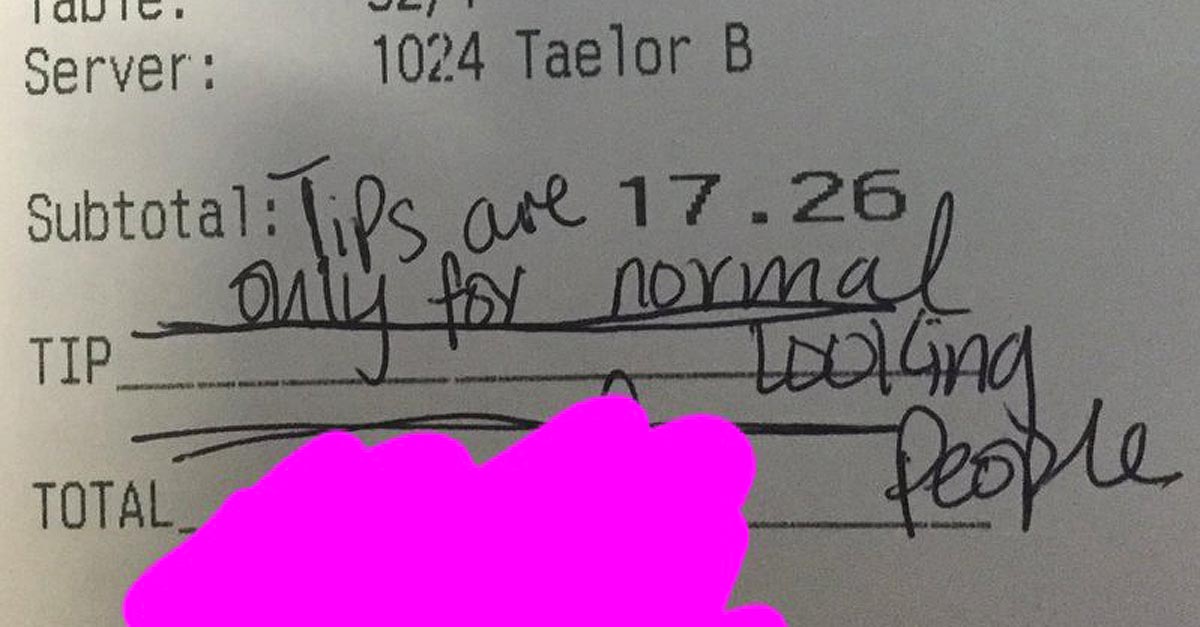 Table:
Server: 1024 Taelor B
Subtotal: 17.26
Tips are
only for normal
looking
People
TIP
TOTAL